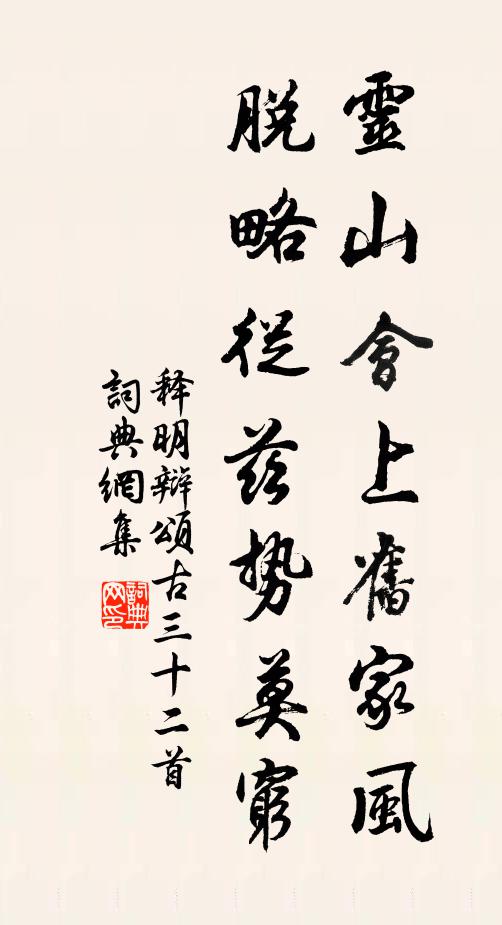 靈山會上舊家風
脫略從茲勢莫窮
释明辯頌古三十二首
詞典網集
詞典网印